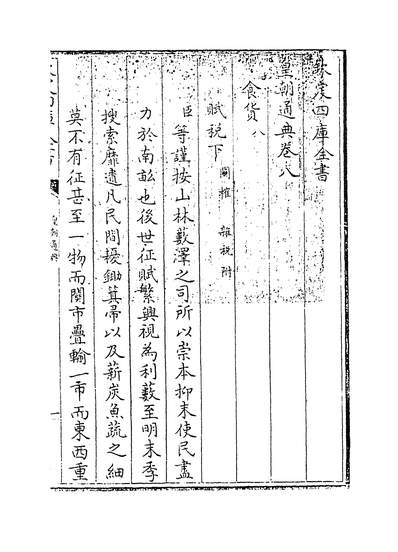 欽定四庫全書
皇朝通典卷八
食貨八
賦税下 關搉 雜税附
臣等謹按山林藪澤之司所以崇本抑末使民盡
力於南畝也後世征賦繁興視為利藪至明末季
搜索靡遺凡民間擾鋤箕帚以及薪炭魚蔬之細
莫不有征甚至一物而關市疊輸一市而東西重